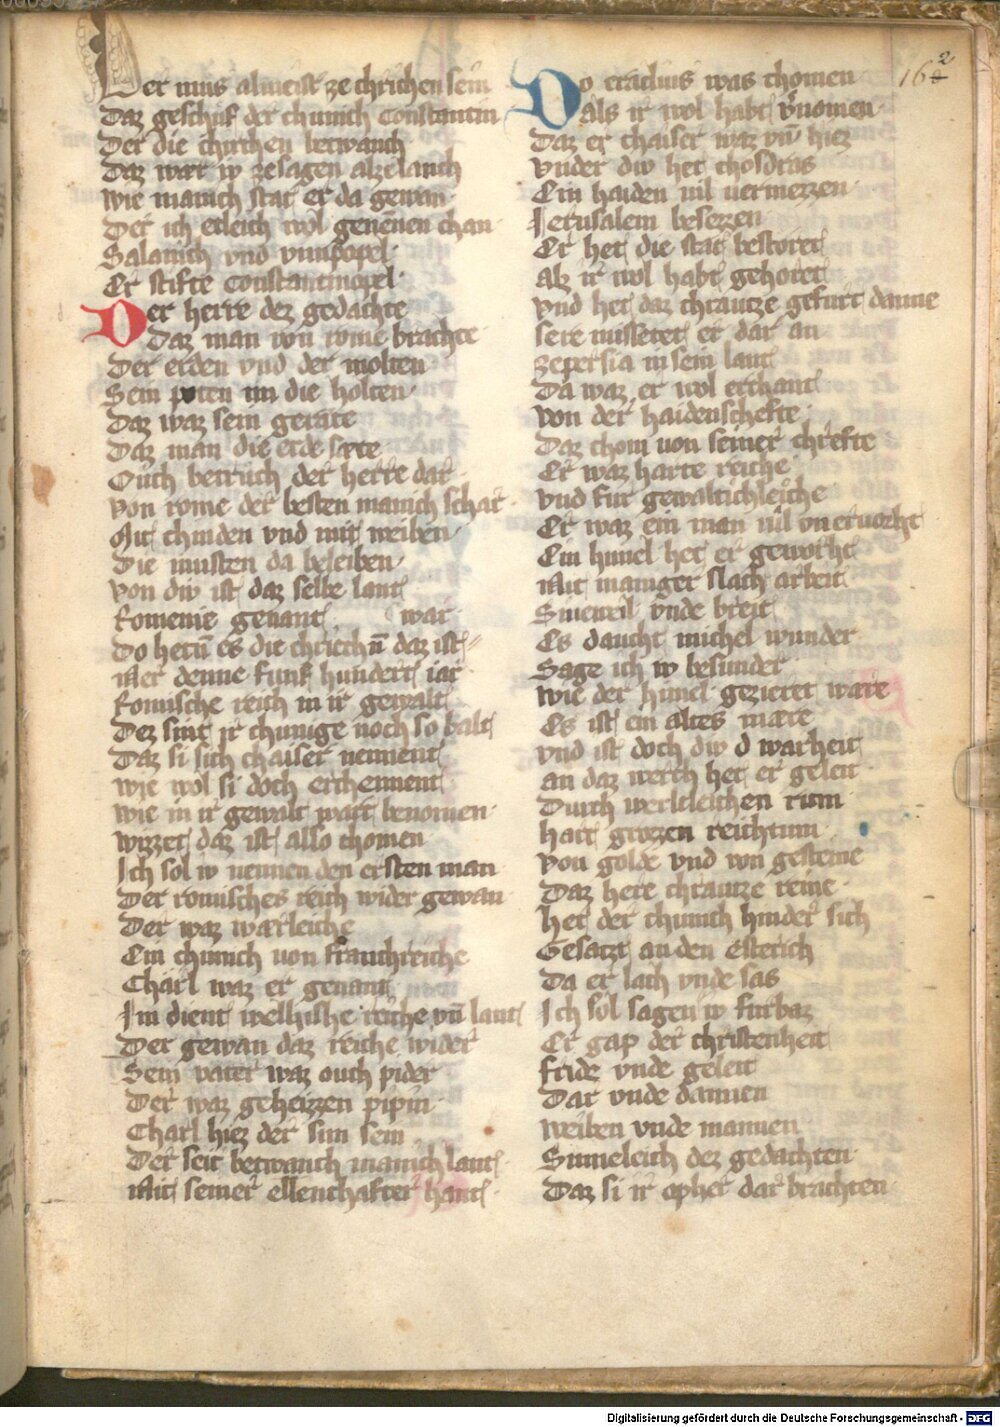 162
Der mus almeist ze chrichen sein
Daz geschuf der chunich Constantin
Der die chirchen betwanch
Daz wær iv ze sagen alze lanch
wie manich stat er da gewan
Der ich etleich wol genennen chan
Salanich vnd vinepopel
Er stifte constantinopel
Der herre dez gedachte
Daz man von rome brachte
Der erden vnd der molten
Sein poten im die holten
Daz waz sein geræte
Daz man die erde sæte
Ouch betruch der herre dar
von rome der besten manich schar
Mit chinden vnd mit weiben
Die musten da beleiben
von div ist daz selbe lant
Romenie genant war
Do hetn es die chriechn daz ist
Mer denne funf hundert iar
Romische reich in ir gewalt
Dez sint ir chunige noch so balt
Daz si sich chaiser nennent
wie wol si doch erchennent
wie in ir gewalt wart benomen
wizzet daz ist also chomen
Ich sol iv nennen den ersten man
Der romisches reich wider gewan
Der waz wærleiche
Ein chunich von franchreiche
Charl waz er genant
Im dient welhishe reiche vn lant
Der gewan daz reiche wider
Sein vater waz ouch pider
Der waz geheizzen pipin
Charl hiez der sun sein
Der seit betwanch manich lant
Mit seiner ellenthafter hant
Do eraclius was chomen
Als ir wol habt vernomen
Daz er chaiser waz vn hiez
vnder div het chosdras
Ein haiden vil vermezzen
Jerusalem besezzen
Er het die stat bestoret
alz ir wol habt gehoret
vnd het daz chrautze gefurt danne
sere missetet er dar an
ze persia in sein lant
Da waz er wol erchant
von der haidenschefte
Daz chom von seiner chrefte
Er waz harte reiche
vnd fur gewaltichleiche
Er waz ein man vil vneruorht
Ein himel het er geworht
Mit maniger slach arbeit
Sinewel vnde breit
Es daucht michel wunder
Sage ich iv besunder
wie der himel gezieret wære
Es ist ein altes mære
vnd ist doch div d warheit
an daz werch het er geleit
Durch werltleichen rum
hart grozen reichtum
von golde vnd von gesteine
Daz here chrautze reine
het der chunich hinder sich
Gesatzt an den esterich
Da er lach vnde sas
Ich sol sagen iv furbaz
Er gap der christenheit
fride vnde geleit
Dar vnde dannen
weiben vnde mannen
Sumeleich dez gedachten
Daz si ir opher dar brachten
Digitalisierung gefördert durch die Deutsche Forschungsgemeinschaft - DFG